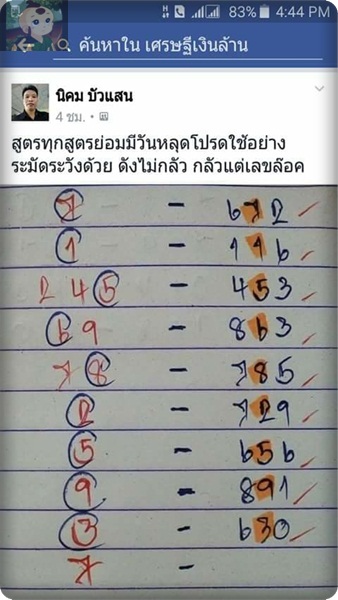 83% 4:44 PM
ค้นหาใน เศรษฐีเงินล้าน
นิคม บัวแสน
4 ชม.
สูตรทุกสูตรย่อมมีวันหลุดโปรดใช้อย่าง
ระมัดระวังด้วย ดังไม่กลัว กลัวแต่เลขล๊อค
7 - 672
1 - 116
2 4 5 - 453
6 9 - 863
7 8 - 785
2 - 729
5 - 656
9 - 891
3 - 630
7 -